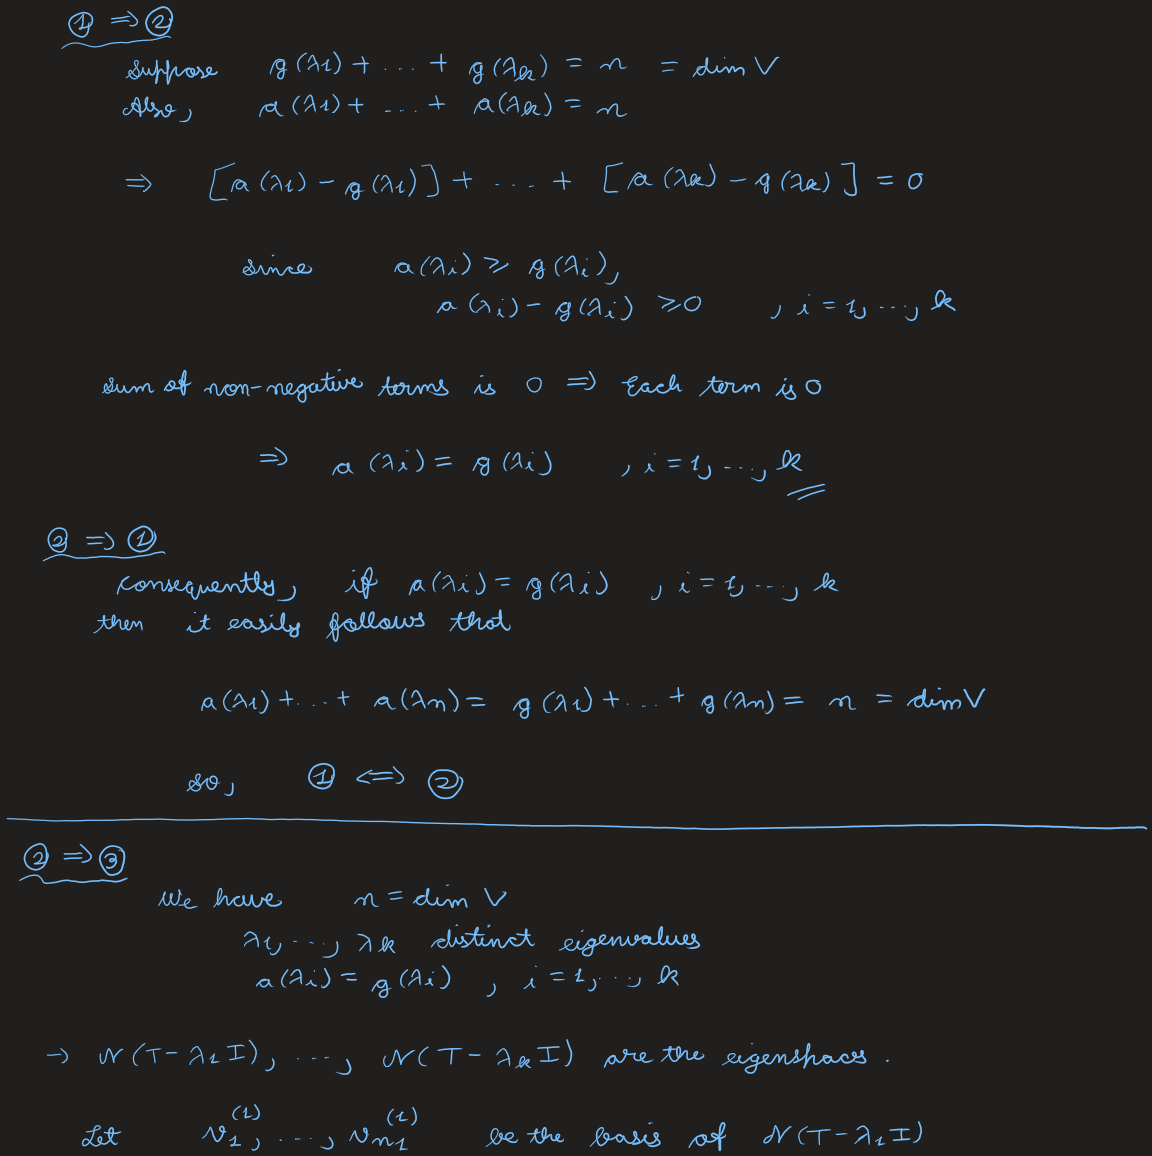 ① ⇒ ②
Suppose g(λ1) + ... + g(λk) = n = dim V
Also, a(λ1) + ... + a(λk) = n
⇒ [a(λ1) - g(λ1)] + ... + [a(λk) - g(λk)] = 0
since a(λi) ≥ g(λi),
a(λi) - g(λi) ≥ 0 , i = 1, ..., k
sum of non-negative terms is 0 ⇒ Each term is 0
⇒ a(λi) = g(λi) , i = 1, ..., k
② ⇒ ①
Consequently, if a(λi) = g(λi) , i = 1, ..., k
then it easily follows that
a(λ1) + ... + a(λn) = g(λ1) + ... + g(λn) = n = dim V
so, ① ⇔ ②
② ⇒ ③
We have n = dim V
λ1, ..., λk distinct eigenvalues
a(λi) = g(λi) , i = 1, ..., k
→ N(T - λ1 I), ..., N(T - λk I) are the eigenspaces.
Let v₁⁽¹⁾, ..., vₙ₁⁽¹⁾ be the basis of N(T - λ1 I)